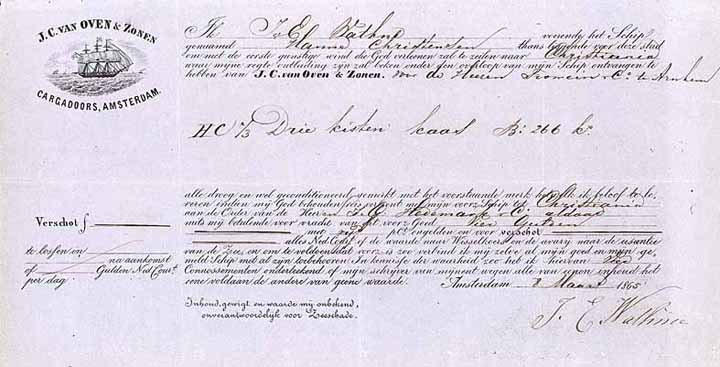 J. C. VAN OVEN & ZONEN
CARGADOORS, AMSTERDAM.
Ik J. E. voerende het Schip
genaamd Hanna Christensen thans liggende voor deze stad
om met de eerste gunstige wind die God verleenen zal te zeilen naar Christiania
waar mijne regte ontlading zijn zal beken onder den overloop van mijn Schip ontvangen te
hebben van J. C. van Oven & Zonen. voor de Heeren & Co. te Arnhem
HC 1/3 Drie kisten kaas B: 266 k.
alle droog en wel geconditioneerd, gemerkt met het voorstaande merk, ik beloof te le-
veren indien mij God behouden reis verleent met mijn voorz: Schip te Christiania
aan de Order van de Heeren & Co. aldaar
mits mij betalende voor vracht van dit voorz: Goed Vier Gulden
met pCt. ongelden en voor verschot
alles Ned. Cour.t of de waarde naar Wisselkoers en de avary naar de usantie
van de Zee, en om te voldoen dat voorz: is zoo verbind ik mij zelve al mijn goed en mijn ge-
meld Schip met al zijn toebehooren. In kennisse der waarheid zoo heb ik hiervan
Connossementen onderteekend of mijn schrijver van mijnent wegen alle van eenen inhoud het
eene voldaan de andere van geene waarde. Amsterdam 8 Maart 1865
Verschot f
te lossen en
na aankomst
of Gulden Ned. Cour.t
per dag
Inhoud, gewigt en waarde mij onbekend,
onverantwoordelijk voor Zeeschade.
J. E.